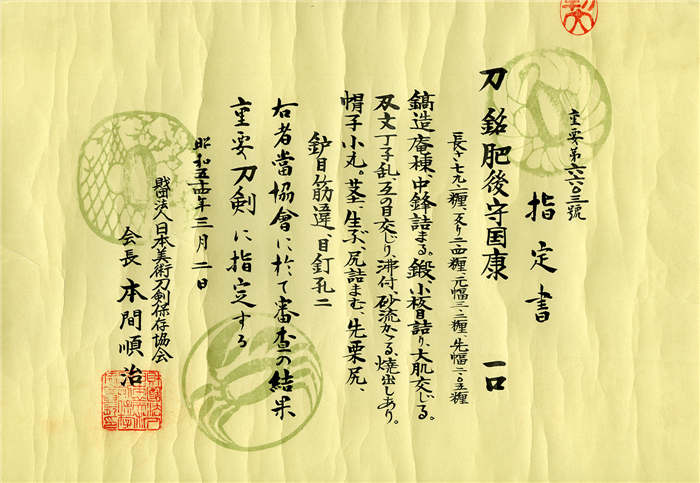 重要第六六〇三號
指定書
刀 銘 肥後守国康 一口
長さ七九、二糎、反り二、四糎、元幅三、二糎、先幅二、〇五糎
鎬造、庵棟、中鋒詰まる。鍛小杢目詰り、大肌交じる。
刃文丁子乱、互の目交じり、沸付、砂流かゝる、焼出しあり。
帽子小丸。茎、生ぶ、尻詰まむ、先栗尻、
鈩目筋違、目釘孔二
右者當協會に於て審査の結果
重要刀剣に指定する
昭和五十四年三月二日
財団法人日本美術刀剣保存協会
会長 本間順治